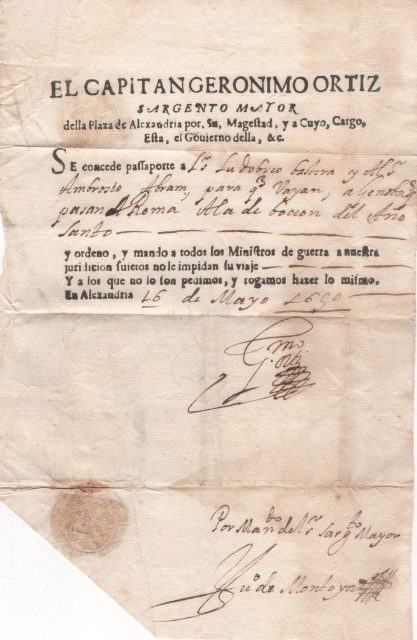 EL CAPITAN GERONIMO ORTIZ
SARGENTO MAYOR
della Plaza de Alexandria por, Su, Magestad, y a Cuyo, Cargo,
Esta, el Gouierno della, &c.
SE concede passaporte a Ludobico y
Ambrosio Abram, para q̃ Vayan, a
pasan a Roma Ala de bocion del Año
Santo
y ordeno, y mando a todos los Ministros de guerra a nuestra
juridicion suietos no le impidan su viaje
Y a los que no lo son pedimos, y rogamos hazer lo mismo.
En Alexandria 16 de Mayo 1650
Por Man.do del s.r Sarg.to Mayor
de Montoya